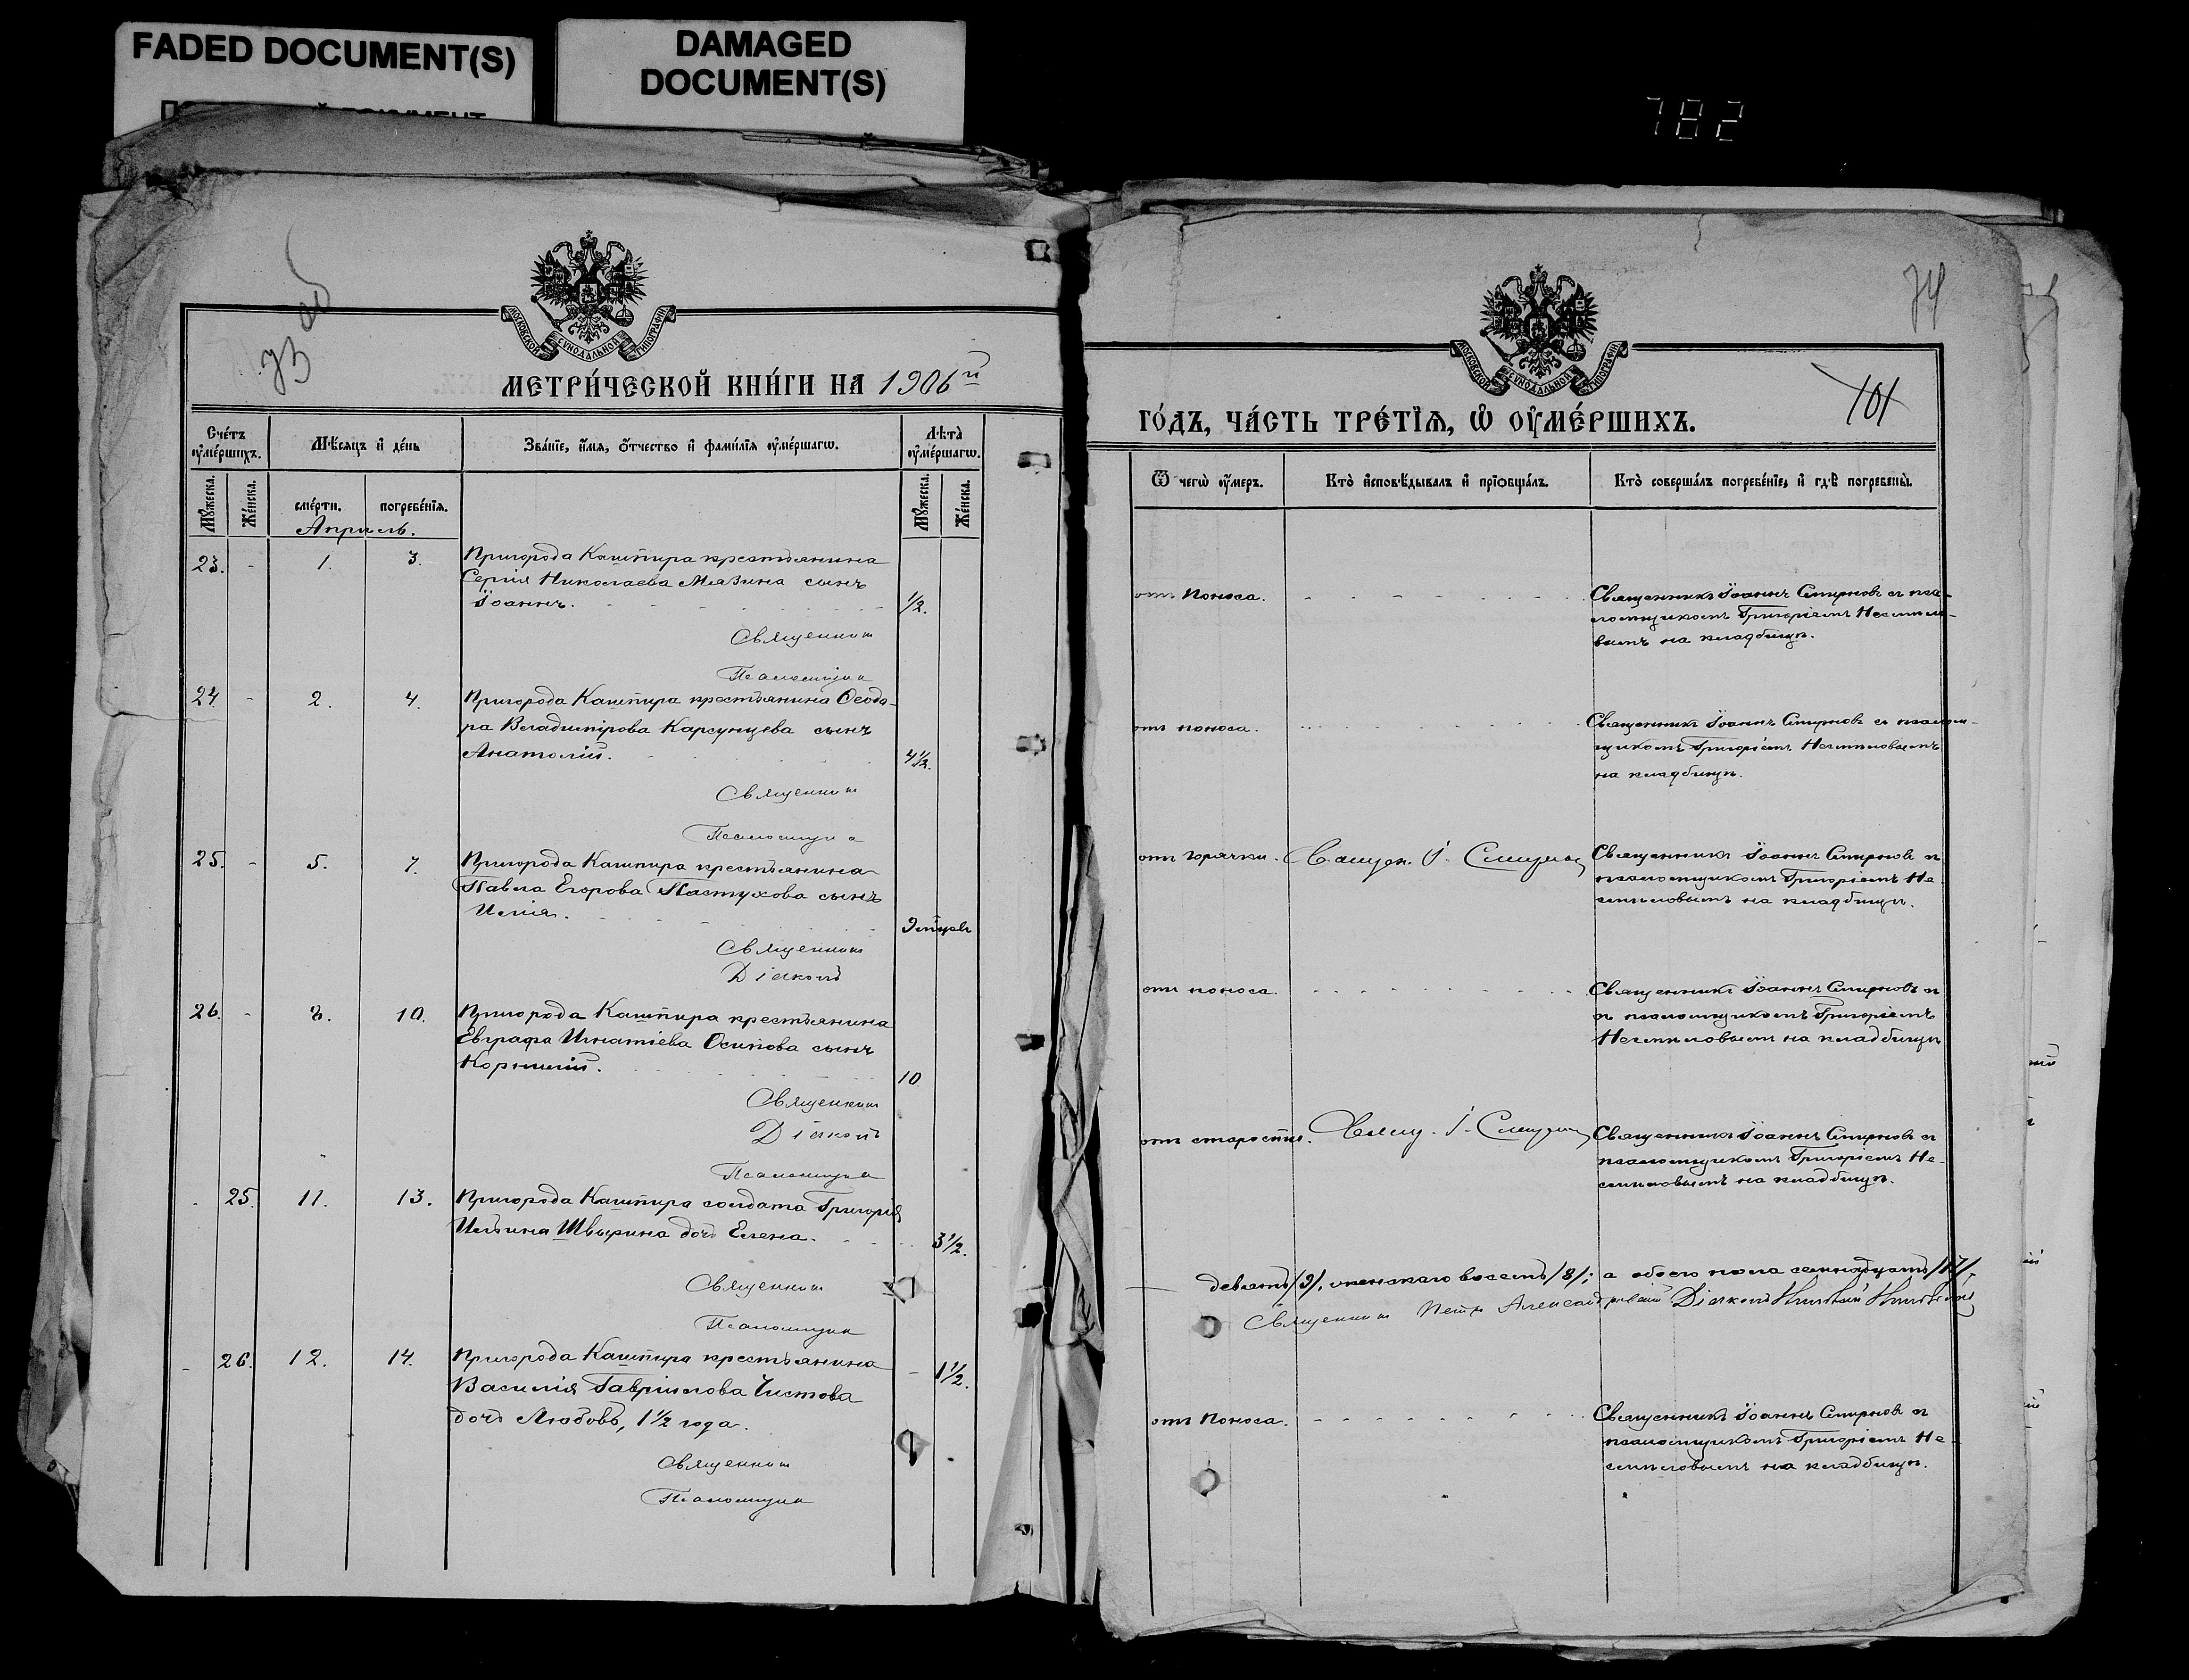 FADED DOCUMENT(S)
DAMAGED
DOCUMENT(S)
782
73 об
МОСКОВСКОЙ СѴНОДАЛЬНОЙ ТИПОГРАФІИ
МЕТРИ́ЧЕСКОЙ КНИ́ГИ НА 1906й
Счéтъ ᲂу҆мéршихъ.
Мѣ́сяцъ и҆ дéнь
Звáнїе, и҆́мѧ, ѻ҆́тчество и҆ фамѝлїѧ ᲂу҆мéршагѡ.
Лѣ̑та ᲂу҆мéршагѡ.
Мꙋ́жеска.
Жéнска.
смéрти.
погребéнїѧ.
Мꙋ́жеска.
Жéнска.
Апрѣль.
23. - 1. 3. Пригорода Кашпира крестьянина
Сергія Николаева Мязина сынъ
Іоаннъ. 1/2.
Священник
Псаломщик
24 - 2. 4. Пригорода Кашпира крестьянина Ѳеодо-
ра Владимірова Карсунцева сынъ
Анатолій. 4 1/2.
Священник
Псаломщик
25. - 5. 7. Пригорода Кашпира крестьянина
Павла Егорова Пастухова сынъ
Илія. 9
Священник
Діаконъ
26. - 8. 10. Пригорода Кашпира крестьянина
Евграфа Игнатіева Осипова сынъ
Корнилій. 10
Священник
Діаконъ
Псаломщик
- 25. 11. 13. Пригорода Кашпира солдата Григорія
Ильина Швырина дочь Елена. 3 1/2.
Священник
Псаломщик
- 26. 12. 14. Пригорода Кашпира крестьянина
Василія Гавріилова Чистова - 1 1/2.
дочь Любовь, 1 1/2 года.
Священник
Псаломщик
74
101
МОСКОВСКОЙ СѴНОДАЛЬНОЙ ТИПОГРАФІИ
ГÓДЪ, ЧÁСТЬ ТРÉТЇѦ, Ѡ҆ ОУ҆МÉРШИХЪ.
Ѿ чегѡ̀ ᲂу҆́меръ.
Ктò и҆сповѣ́дывалъ и҆ прїѻбщáлъ.
Ктò совершáлъ погребéнїе, и҆ гдѣ̀ погребены̀.
отъ поноса. Священникъ Іоаннъ Смирновъ съ пса-
ломщикомъ Григоріемъ Несмѣло-
вымъ на кладбищѣ.
отъ поноса. Священникъ Іоаннъ Смирновъ съ псалом-
щикомъ Григоріемъ Несмѣловымъ
на кладбищѣ.
отъ горячки. Священ. І. Смирнов Священникъ Іоаннъ Смирновъ съ
псаломщикомъ Григоріемъ Не
смѣловымъ на кладбищѣ.
отъ поноса. Священникъ Іоаннъ Смирновъ съ
съ псаломщикомъ Григоріемъ
Несмѣловымъ на кладбищѣ
отъ старости. Свящ. І. Смирнов Священникъ Іоаннъ Смирновъ съ
псаломщикомъ Григоріемъ Не-
смѣловымъ на кладбищѣ.
девять /9/, женскаго восемь /8/; а обоего пола семнадцать /17/.
Священник Петр Александровский Діаконъ
отъ поноса. Священникъ Іоаннъ Смирновъ съ
псаломщикомъ Григоріемъ Не-
смѣловымъ на кладбищѣ.